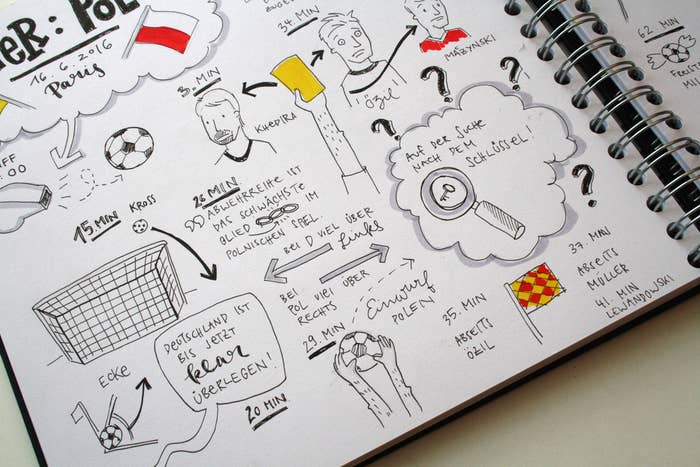 ER: POL
16. 6. 2016
Paris
:00
34. MIN
3. MIN
KHEDIRA
ÖZIL
MĄZYNSKI
62. MIN
AUF DER SUCHE
NACH DEM
SCHLÜSSEL!
15. MIN
KROSS
26. MIN
ABWEHRREIHE IST
DAS SCHWÄCHSTE
GLIED IM
POLNISCHEN SPIEL.
BEI D VIEL ÜBER
Links
BEI
POL VIEL ÜBER
RECHTS
29. MIN
Einwurf
POLEN
35. MIN
ABSEITS
ÖZIL
37. MAN
ABSEITS
MÜLLER
41. MIN
LEWANDOWSKI
DEUTSCHLAND IST
BIS JETZT
klar
ÜBERLEGEN!
20 MIN
ECKE